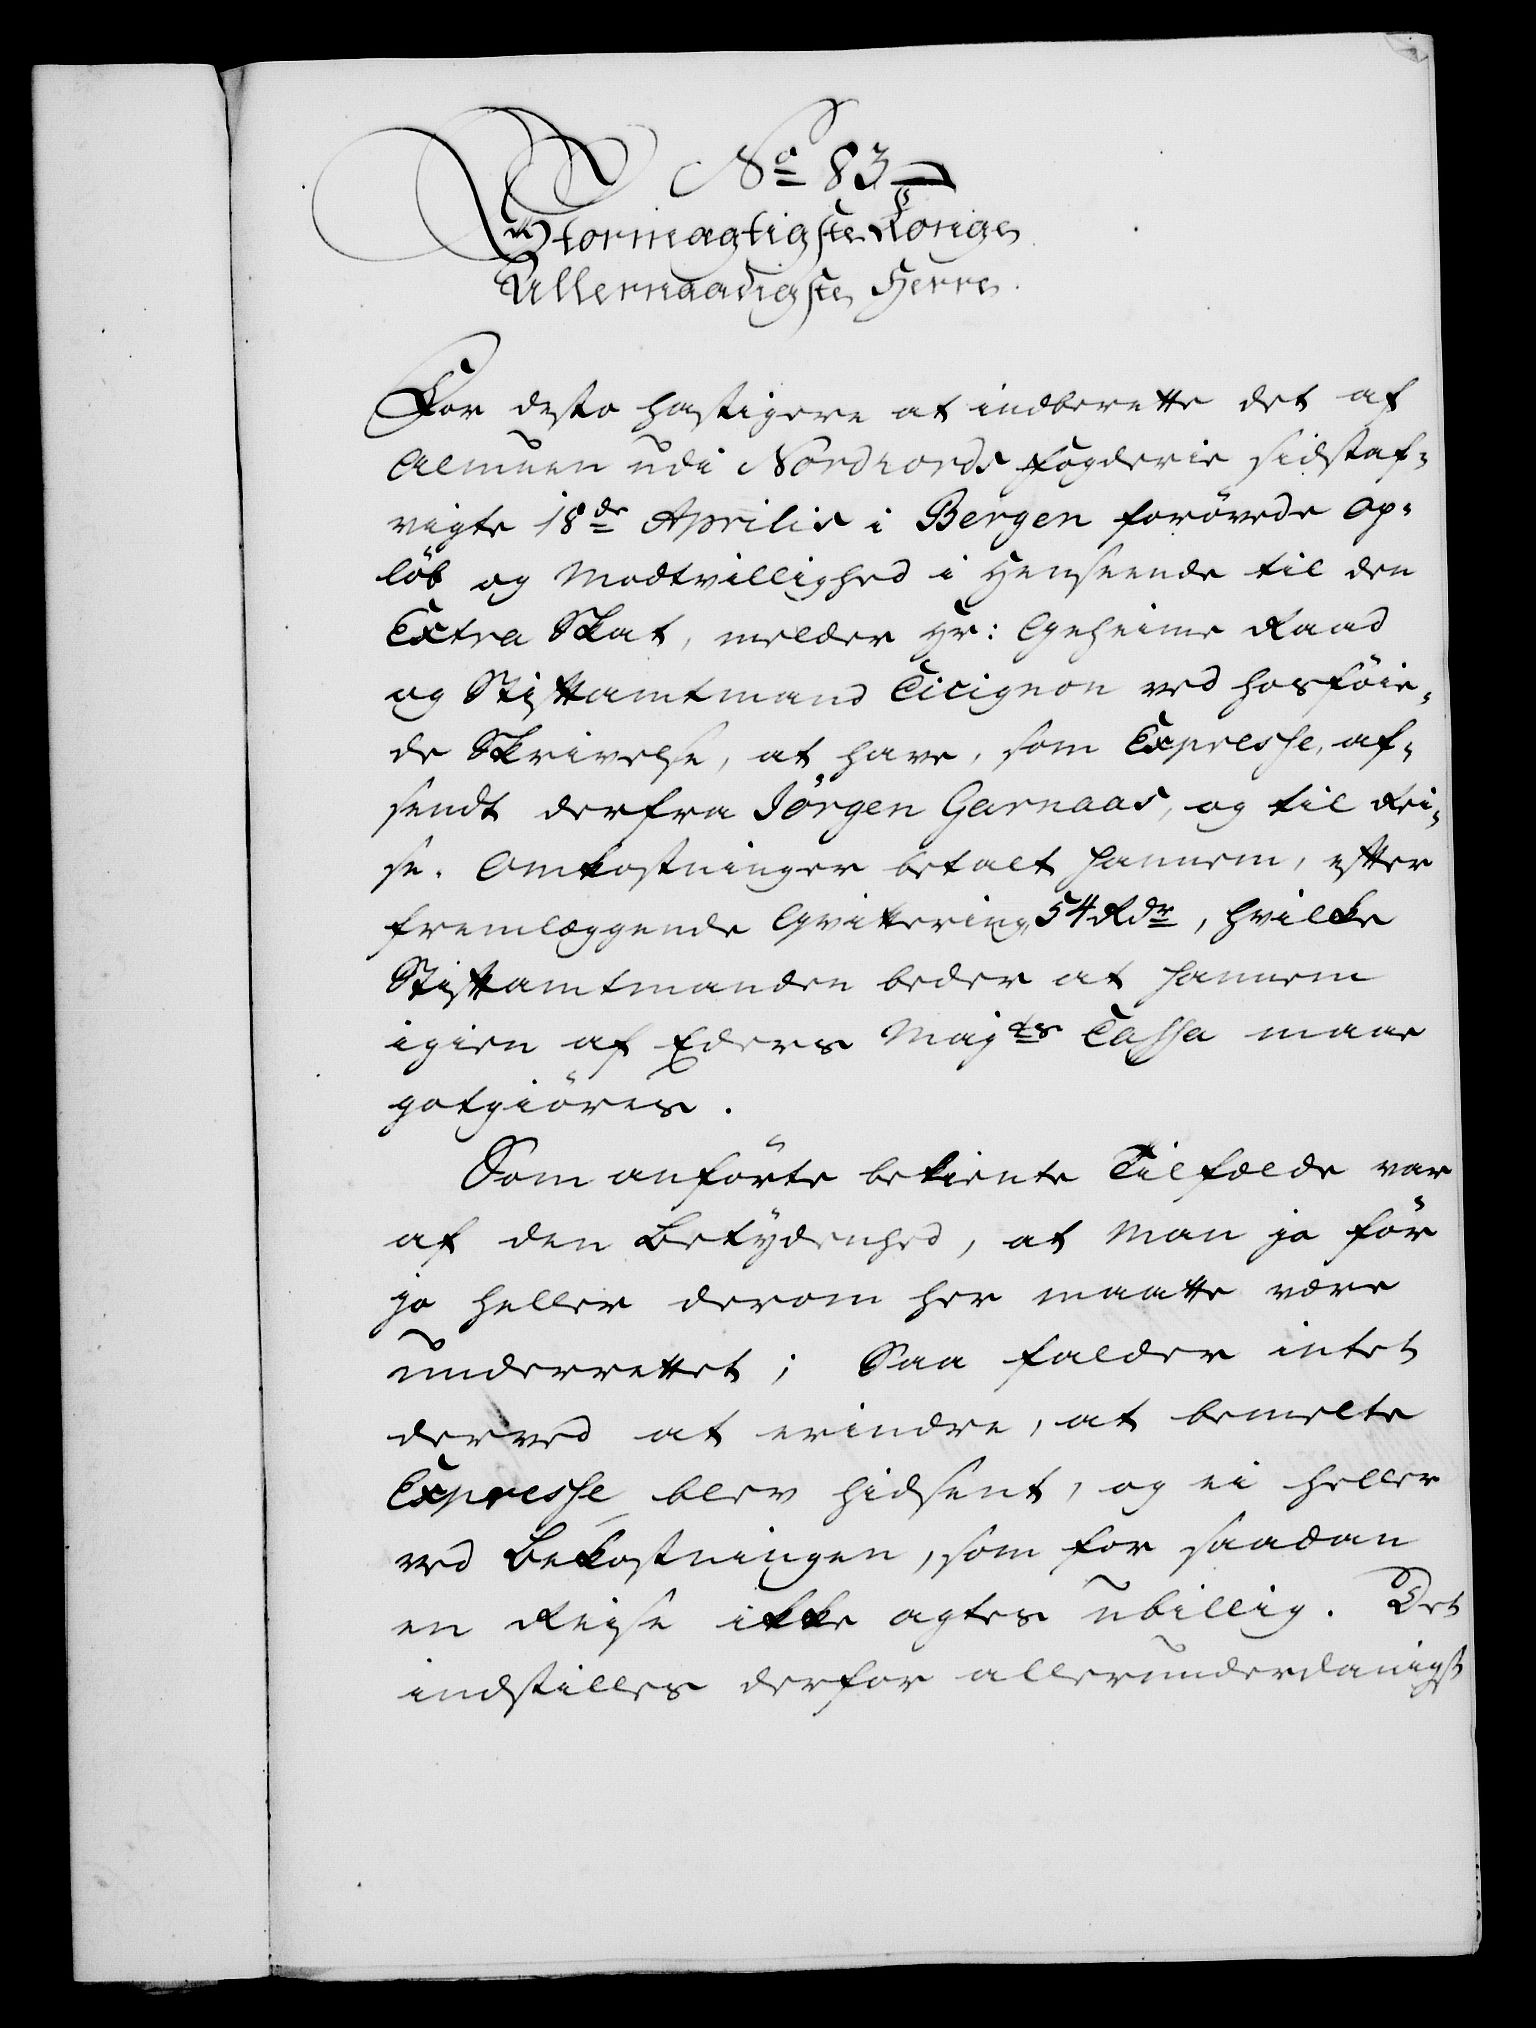 No 83
Stormægtigste Konge
Allernaadigste Herre.
For desto hastigere at indberette det af
Almuen udi Nordhords Fogderie sidstaf-
vigte 18de Aprilis i Bergen forövede Op-
löb og Modtvillighed i Henseende til den
Extra Skat, melder Hr: Geheime Raad
og Stiftamtmand Cicignon ved hosföie-
de Skrivelse, at have, som Expresse, af-
sendt derfra Jörgen Garnaas, og til Rei-
se-Omkostninger betalt hannem, efter
fremlæggende Qvittering 54 Rdr, hvilke
Stiftamtmanden beder at hannem
igien af Eders Majts Cassa maae
gotgiöres.
Som anförte bekiente Tilfælde var
af den Betydenhed, at Man jo för
jo heller derom her maatte være
underrettet; Saa falder intet
derved at erindre, at bemelte
Expresse blev hidsent, og ei heller
ved Bekostningen, som for saadan
en Reise ikke agtes ubillig. Det
indstilles derfor allerunderdanigst